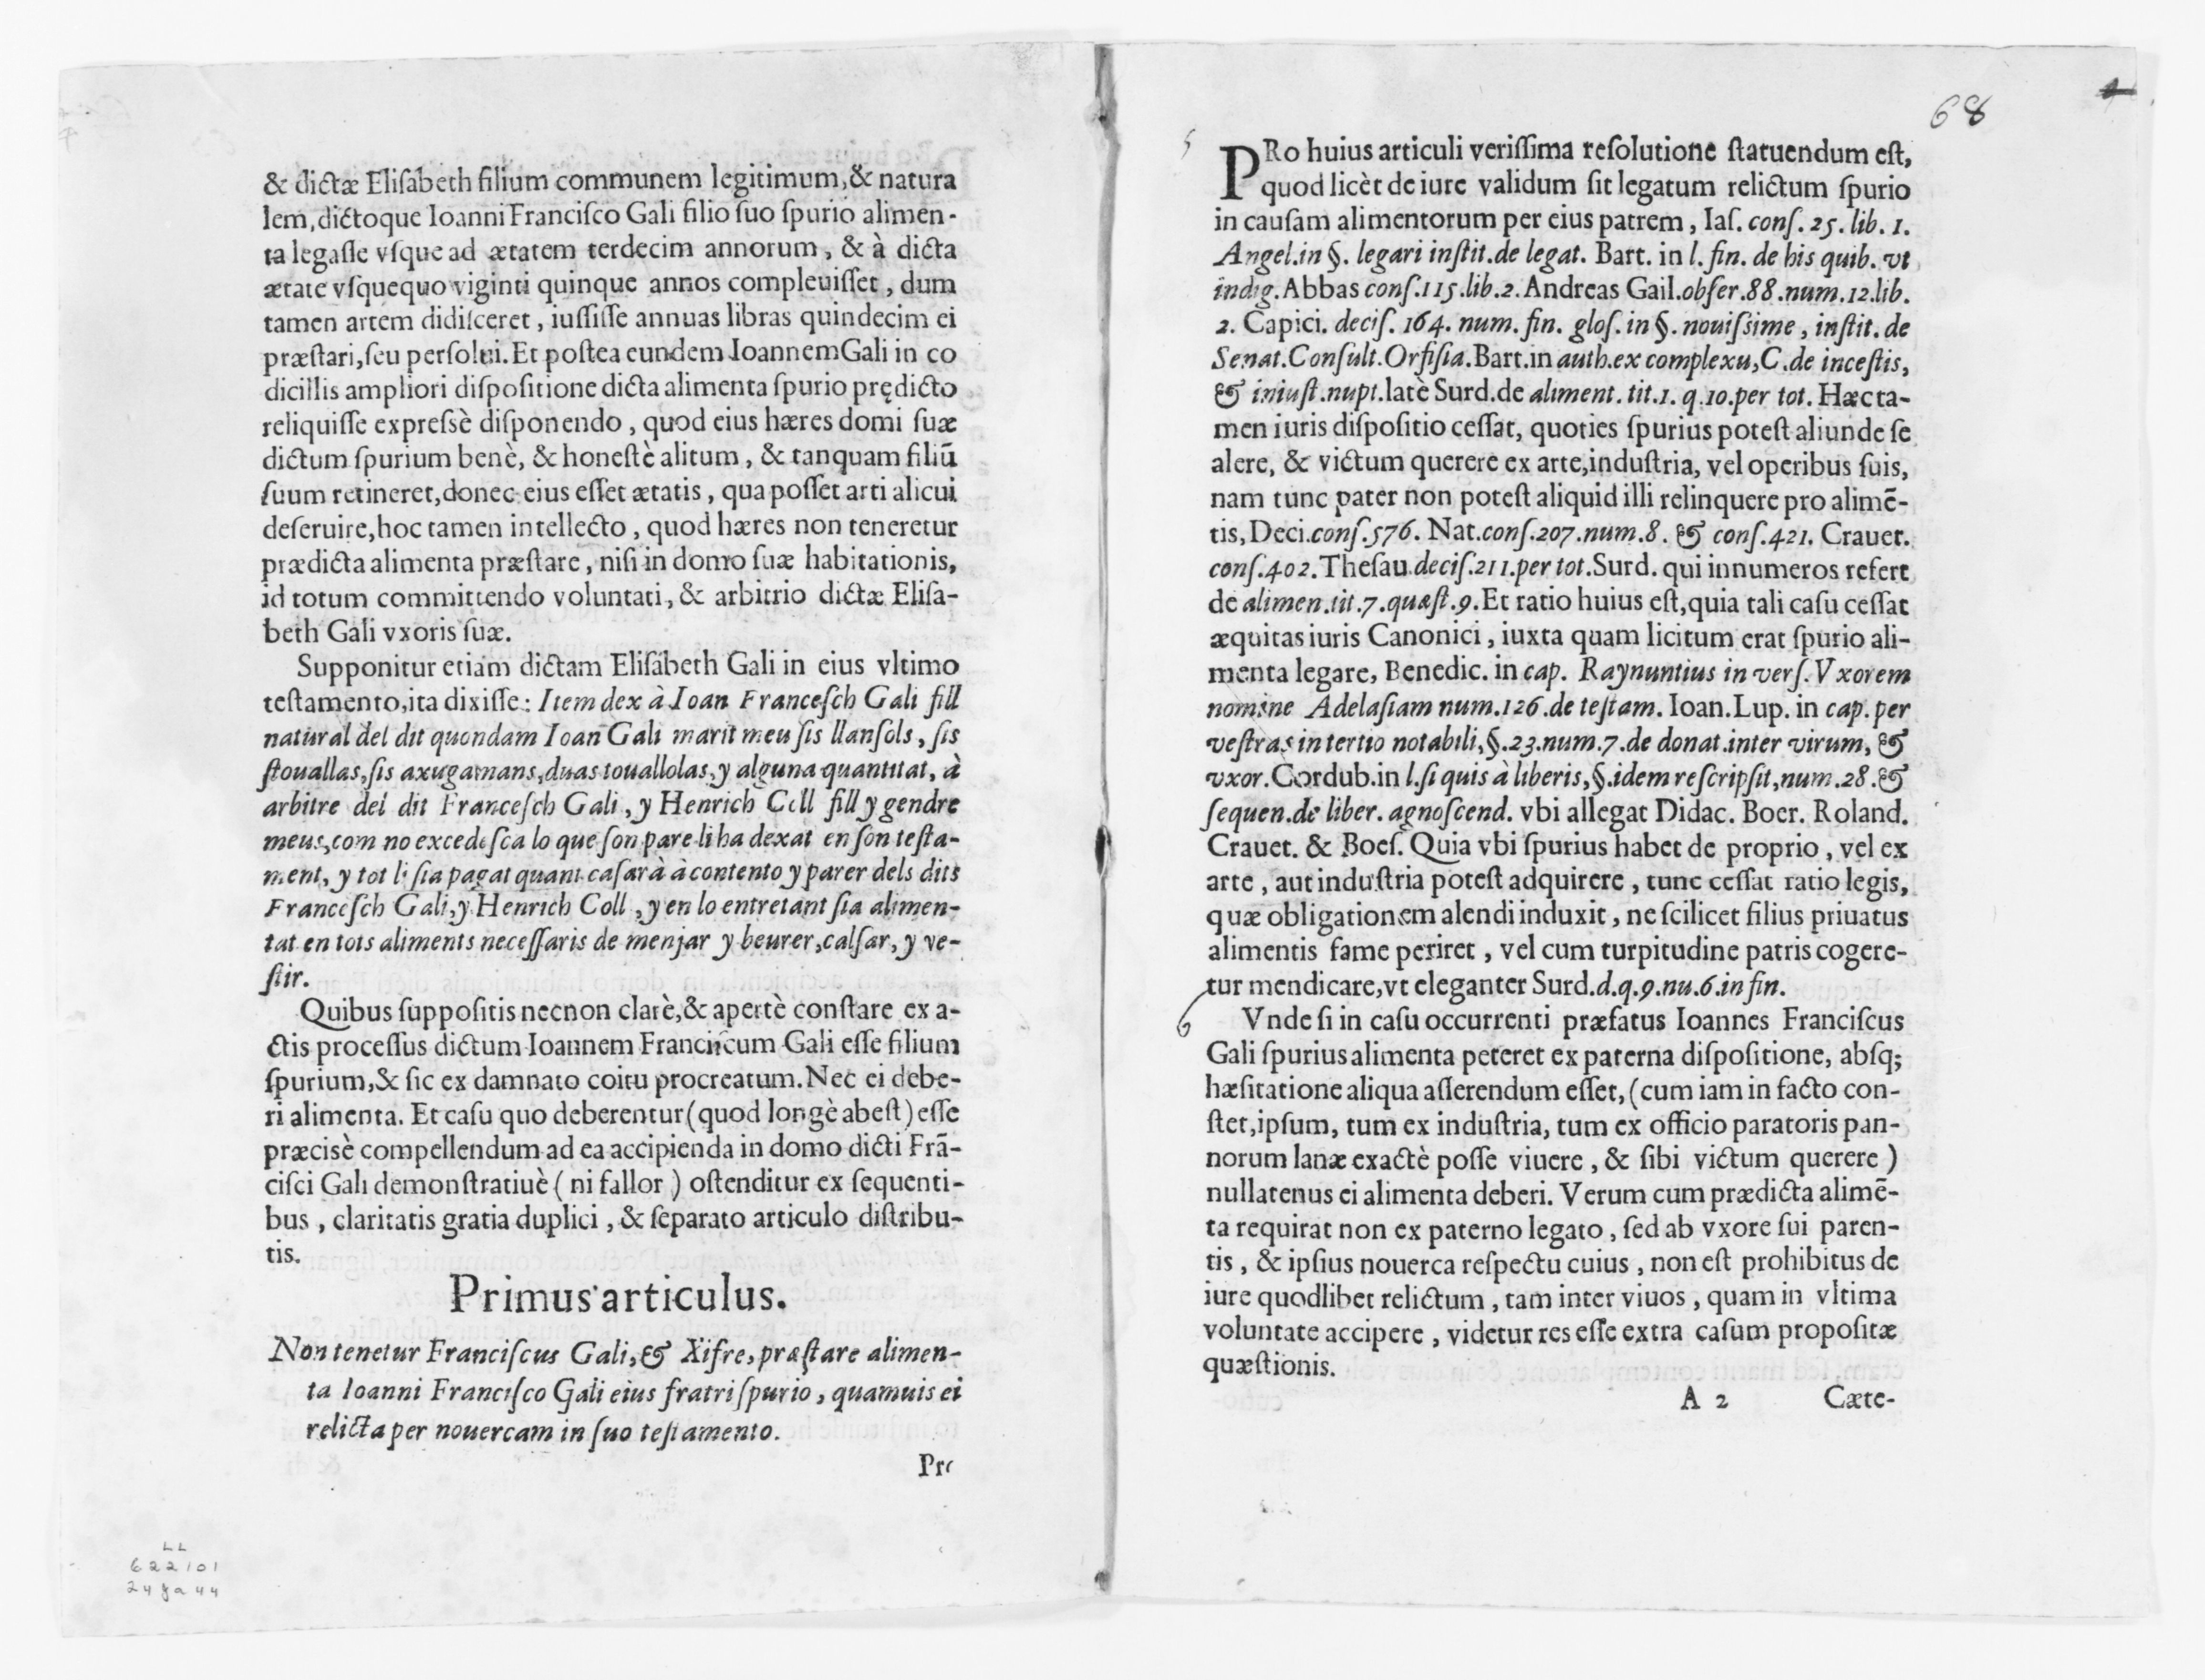 & dictæ Eliſabeth filium communem legitimum,& natura
lem,dictoque Ioanni Franciſco Gali filio ſuo ſpurio alimen-
ta legaſſe vſque ad ætatem terdecim annorum, & à dicta
ætate vſquequo viginti quinque annos compleuiſſet, dum
tamen artem didiſceret, iuſſiſſe annuas libras quindecim ei
præſtari,ſeu perſolui. Et poſtea eundem Ioannem Gali in co
dicillis ampliori diſpoſitione dicta alimenta ſpurio prędicto
reliquiſſe expreſsè diſponendo, quod eius hæres domi ſuæ
dictum ſpurium benè, & honeſtè alitum, & tanquam filiũ
ſuum retineret,donec eius eſſet ætatis, qua poſſet arti alicui
deſeruire,hoc tamen intellecto, quod hæres non teneretur
prædicta alimenta præſtare, niſi in domo ſuæ habitationis,
id totum committendo voluntati, & arbitrio dictæ Eliſa-
beth Gali vxoris ſuæ.
Supponitur etiam dictam Eliſabeth Gali in eius vltimo
teſtamento,ita dixiſſe: Item dex à Ioan Franceſch Gali fill
natural del dit quondam Ioan Gali marit meu ſis llanſols, ſis
ſtouallas,ſis axugamans,duas touallolas,y alguna quantitat, à
arbitre del dit Franceſch Gali, y Henrich Coll fill y gendre
meus,com no excedeſca lo que ſon pare li ha dexat en ſon teſta-
ment, y tot li ſia pagat quant caſarà à contento y parer dels dits
Franceſch Gali,y Henrich Coll, y en lo entretant ſia alimen-
tat en tots aliments neceſſaris de menjar y beurer,calſar, y ve-
ſtir.
Quibus ſuppoſitis necnon clarè,& apertè conſtare ex a-
ctis proceſſus dictum Ioannem Franciſcum Gali eſſe filium
ſpurium,& ſic ex damnato coitu procreatum. Nec ei debe-
ri alimenta. Et caſu quo deberentur (quod longè abeſt) eſſe
præcisè compellendum ad ea accipienda in domo dicti Frã-
ciſci Gali demonſtratiuè ( ni fallor ) oſtenditur ex ſequenti-
bus, claritatis gratia duplici, & ſeparato articulo diſtribu-
tis.
Primus articulus.
Non tenetur Franciſcus Gali,& Xifre,præſtare alimen-
ta Ioanni Franciſco Gali eius fratri ſpurio, quamuis ei
relicta per nouercam in ſuo teſtamento.
Pro
LL
622101
24 ga 44
68
PRo huius articuli veriſſima reſolutione ſtatuendum eſt,
quod licèt de iure validum ſit legatum relictum ſpurio
in cauſam alimentorum per eius patrem, Iaſ. conſ. 25. lib. 1.
Angel.in §. legari inſtit.de legat. Bart. in l. fin. de his quib. vt
indig. Abbas conſ.115.lib.2. Andreas Gail.obſer.88.num.12.lib.
2. Capici. deciſ. 164. num. fin. gloſ. in §. nouiſsime, inſtit. de
Senat.Conſult.Orfiſia.Bart.in auth.ex complexu,C.de inceſtis,
& iniuſt.nupt.latè Surd.de aliment. tit.1. q.10.per tot. Hæc ta-
men iuris diſpoſitio ceſſat, quoties ſpurius poteſt aliunde ſe
alere, & victum querere ex arte,induſtria, vel operibus ſuis,
nam tunc pater non poteſt aliquid illi relinquere pro alimẽ-
tis, Deci.conſ.576. Nat.conſ.207.num.8. & conſ.421. Crauet.
conſ.402. Theſau.deciſ.211.per tot.Surd. qui innumeros refert
de alimen.tit.7.quæſt.9. Et ratio huius eſt,quia tali caſu ceſſat
æquitas iuris Canonici, iuxta quam licitum erat ſpurio ali-
menta legare, Benedic. in cap. Raynuntius in verſ. Vxorem
nomine Adelaſiam num.126.de teſtam. Ioan.Lup. in cap. per
veſtras in tertio notabili,§.23.num.7.de donat.inter virum, &
vxor. Cordub.in l.ſi quis à liberis,§.idem reſcripſit,num.28.&
ſequen.de liber. agnoſcend. vbi allegat Didac. Boer. Roland.
Crauet. & Boeſ. Quia vbi ſpurius habet de proprio, vel ex
arte, aut induſtria poteſt adquirere, tunc ceſſat ratio legis,
quæ obligationem alendi induxit, ne ſcilicet filius priuatus
alimentis fame periret, vel cum turpitudine patris cogere-
tur mendicare,vt eleganter Surd.d.q.9.nu.6.in fin.
6
Vnde ſi in caſu occurrenti præfatus Ioannes Franciſcus
Gali ſpurius alimenta peteret ex paterna diſpoſitione, abſq;
hæſitatione aliqua aſſerendum eſſet, (cum iam in facto con-
ſtet,ipſum, tum ex induſtria, tum ex officio paratoris pan-
norum lanæ exactè poſſe viuere, & ſibi victum querere )
nullatenus ei alimenta deberi. Verum cum prædicta alimẽ-
ta requirat non ex paterno legato, ſed ab vxore ſui paren-
tis, & ipſius nouerca reſpectu cuius, non eſt prohibitus de
iure quodlibet relictum, tam inter viuos, quam in vltima
voluntate accipere, videtur res eſſe extra caſum propoſitæ
quæſtionis.
A 2 Cæte-